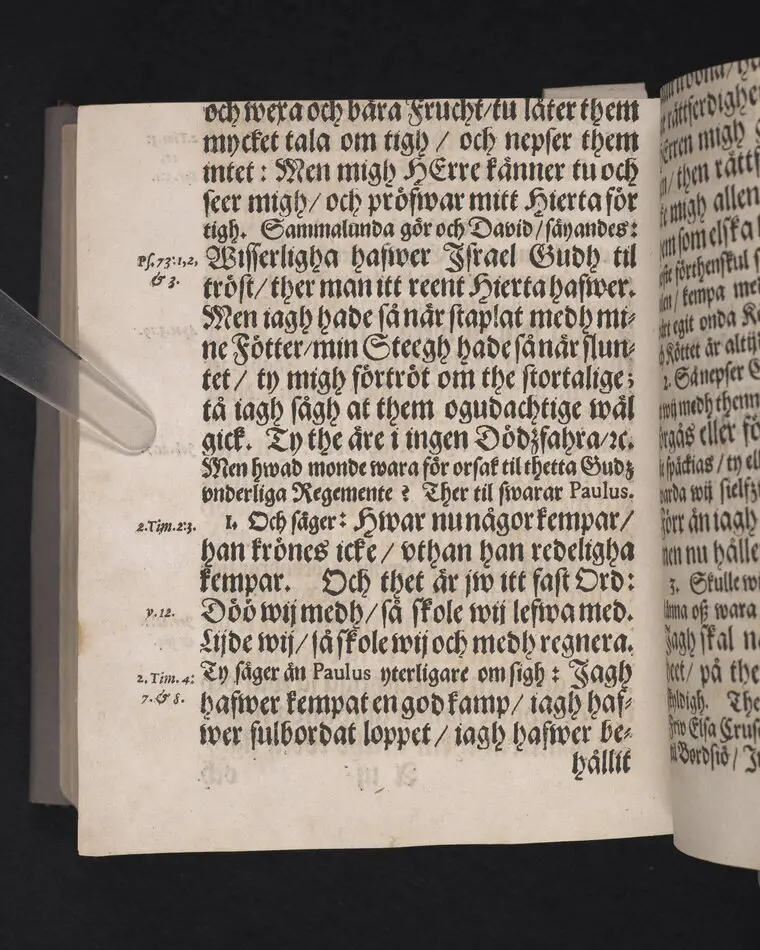 och wexa och bära Frucht/tu låter them
mycket tala om tigh / och nepser them
intet: Men migh HErre känner tu och
seer migh/ och pröfwar mitt Hierta för
tigh. Sammalunda gör och David/såyandes:
Ps.73:1,2, Wisserligha hafwer Israel Gudh til
& 3. tröst/ ther man itt reent Hierta hafwer.
Men iagh hade så når staplat medh mi-
ne Fötter/min Steegh hade så når slun-
tet / ty migh förtröt om the stortalige;
tå iagh sågh at them ogudachtige wål
gick. Ty the åre i ingen Dödzfahra/ꝛc.
Men hwad monde wara för orsak til thetta Gudz
vnderliga Regemente ? Ther til swarar Paulus.
2.Tim.2:3. 1. Och såger: Hwar nu någor kempar/
han krönes icke / vthan han redeligha
kempar. Och thet år jw itt fast Ord:
v.12. Döö wij medh/ så skole wij lefwa med.
Lijde wij/ så skole wij och medh regnera.
2.Tim.4: Ty såger ån Paulus yterligare om sigh: Jagh
7.& 8. hafwer kempat en god kamp/ iagh haf-
wer fulbordat loppet / iagh hafwer be-
hållit
rättferdighe
Erren migh
/then rättf
migh allen
som elska
förthenskul
/ kempa me
egit onda
Köttet är altij
2. Så nepser
wij medh them
eller fö
wij sielf
än iagh
nu hålle
3. Skulle wi
oß wara
Jagh skal
/ på the
The
Frw Elsa Crus